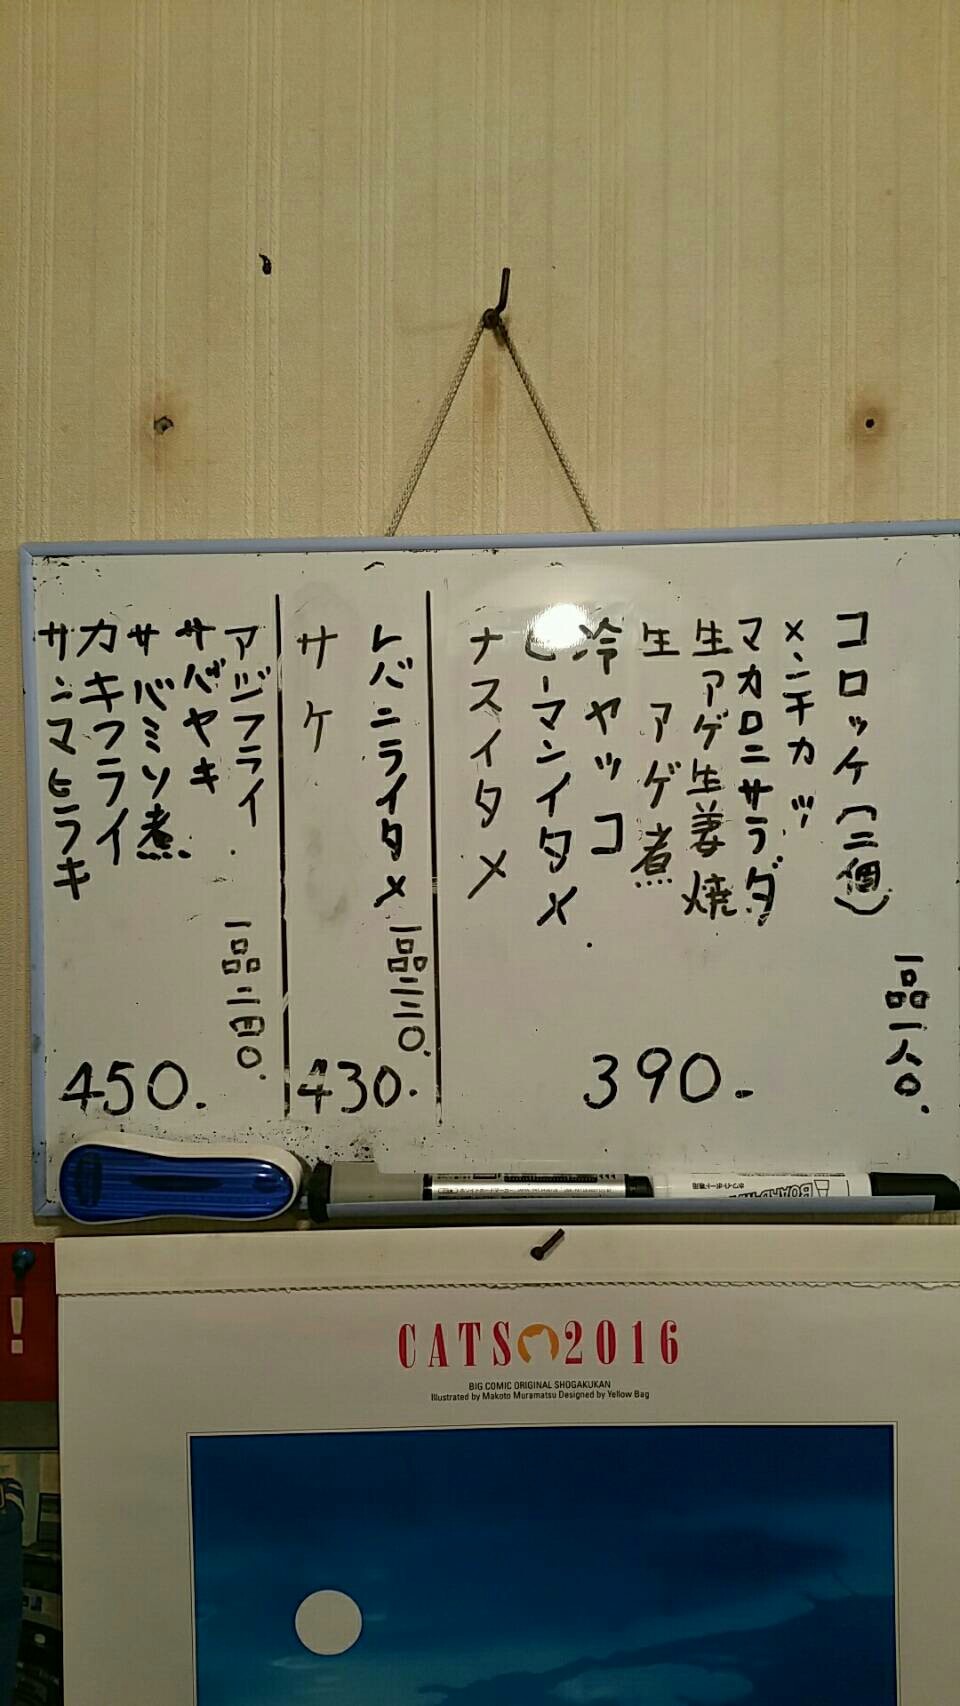 コロッケ(二個)
メンチカツ
マカロニサラダ
生アゲ生姜焼
生アゲ煮
冷ヤッコ
ピーマンイタメ
ナスイタメ
一品一八〇.
390.
レバニライタメ
サケ
一品二三〇.
430.
アジフライ
サバヤキ
サバミソ煮
カキフライ
サンマヒラキ
一品二四〇.
450.
!
CATS 2016
BIG COMIC ORIGINAL SHOGAKUKAN
Illustrated by Makoto Muramatsu Designed by Yellow Bag